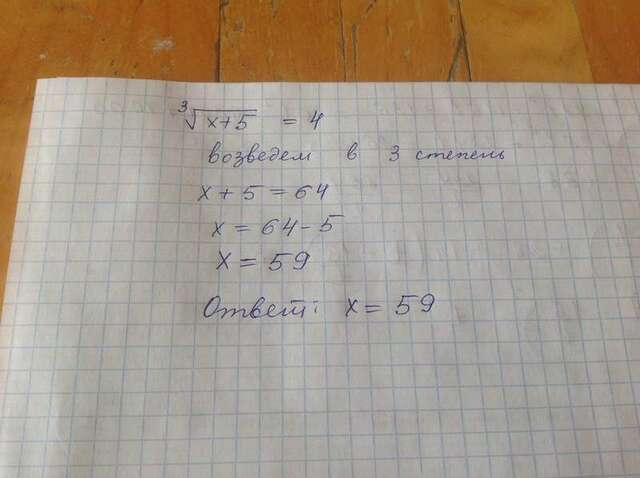 ∛(x+5) = 4
возведем в 3 степень
x + 5 = 64
x = 64 - 5
x = 59
Ответ: x = 59